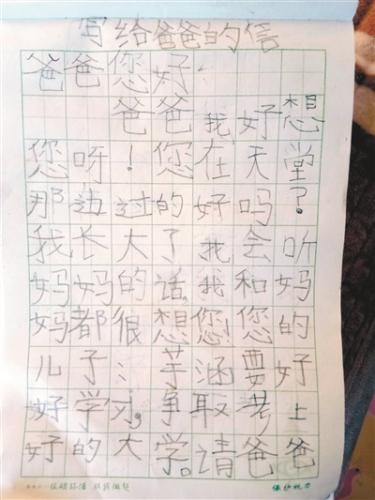 写给爸爸的信
爸爸您好
爸爸我好想
您呀!您在天堂
那边过的好吗?
我长大了我会听
妈妈的话,我和妈
妈都很想您!您的
儿子:芋涵要好
好学习,争取考上
好的大学。请爸爸